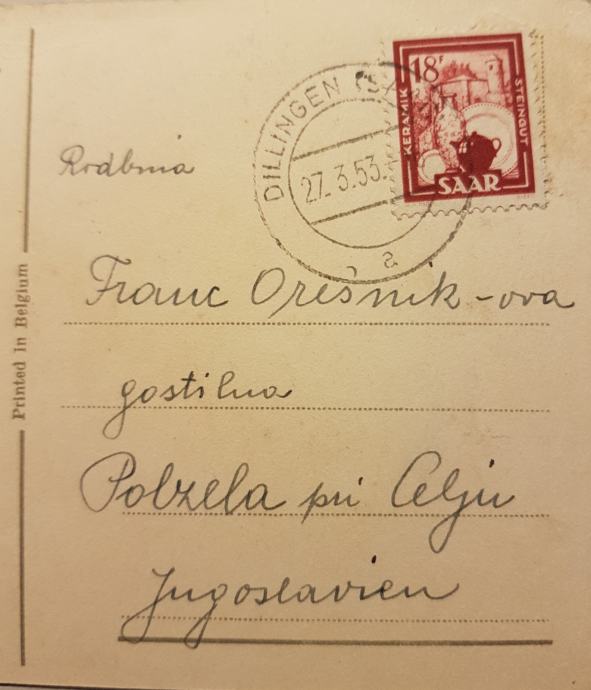 18F
KERAMIK
STEINGUT
SAAR
DILLINGEN (S
27.3.53.
a
Rodbina
Franc Oresnik-ova
gostilna
Polzela pri Celju
Jugoslavien
Printed in Belgium